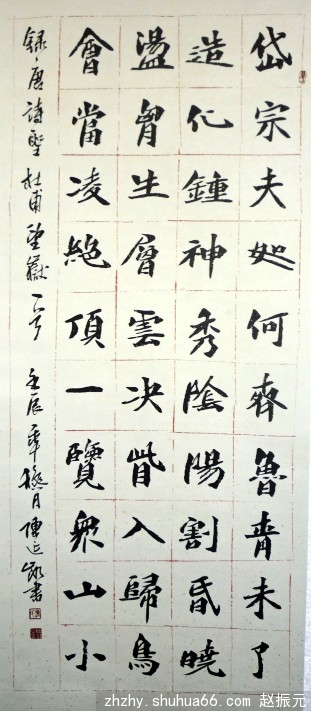 岱宗夫如何齊魯青未了
造化鍾神秀陰陽割昏曉
盪胷生層雲决眥入歸鳥
會當凌絕頂一覽衆山小
錄唐詩聖杜甫望嶽一首 壬辰年月書
zhzhy.shuhua66.com 赵振元